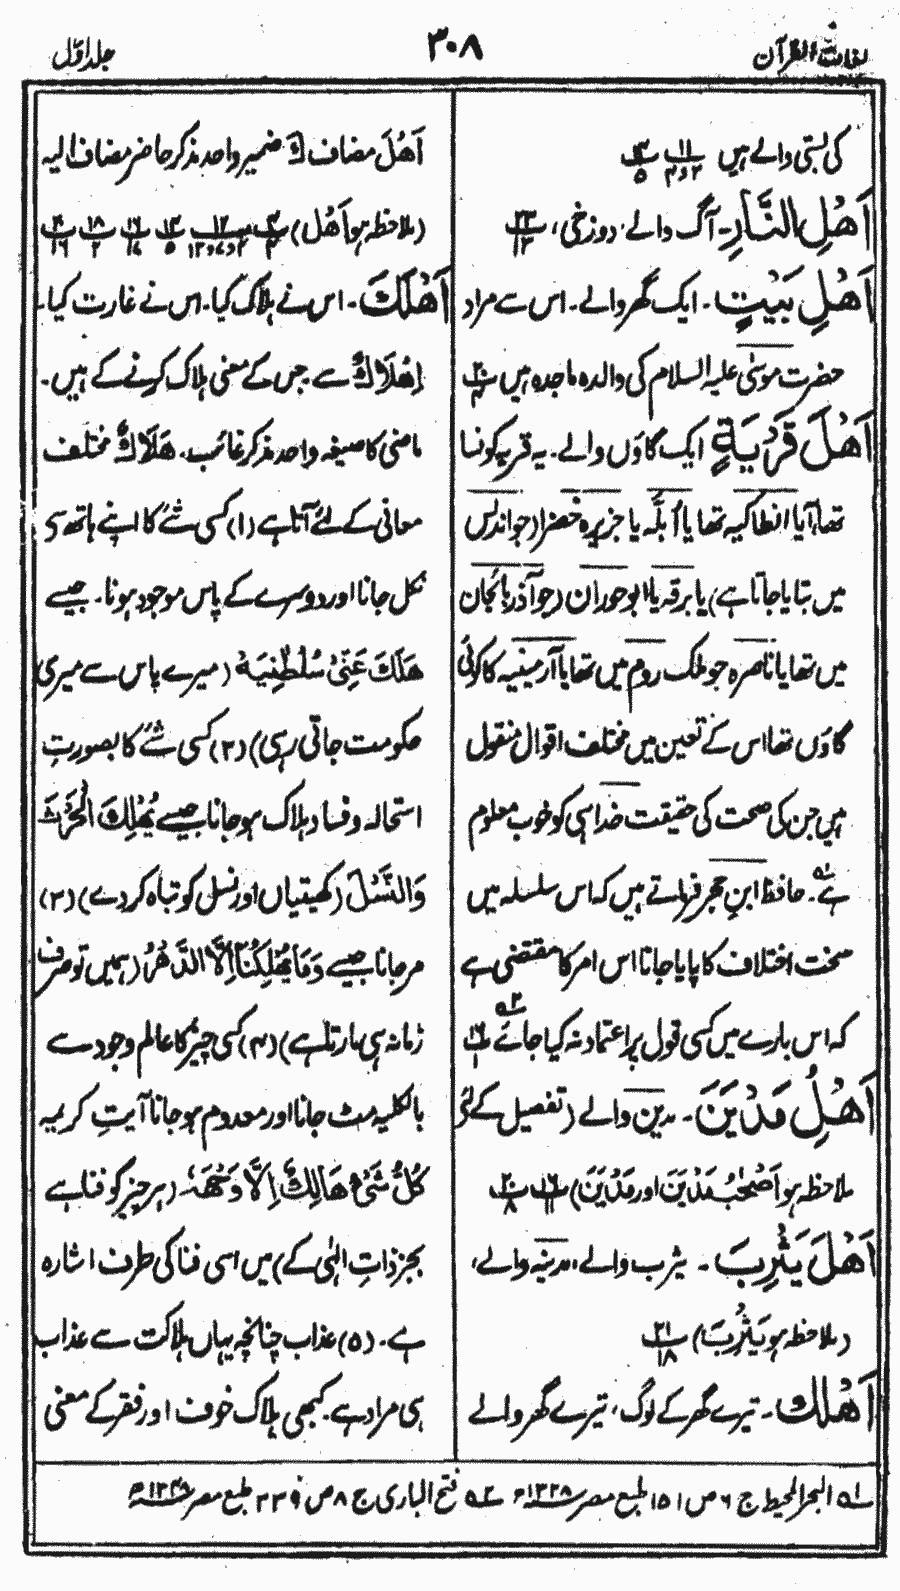 لغات القرآن
۳۰۸
جلد اوّل
کی بستی والے ہیں ۱۱ ۲و۳ ۳ ۵
اَهْلِ النَّارِ۔ آگ والے، دوزخی، ۲۳ ۱۳
اَهْلِ بَيْتٍ ۔ ایک گھر والے۔ اس سے مراد
حضرت موسٰی علیہ السلام کی والدہ ماجدہ ہیں ۲۰ ۴
اَهْلَ قَرْيَةٍ ایک گاؤں والے۔ یہ قریہ کونسا
تھا، آیا انطاکیہ تھا یا اُبلّہ یا جزیرہ خضرا (جو اندلس
میں بتایا جاتا ہے) یا برقہ یا ابو حوران (جو آذربائجان
میں تھا یا ناصرہ جو ملک روم میں تھا یا آرمینیہ کا کوئی
گاؤں تھا اس کے تعین میں مختلف اقوال منقول
ہیں جن کی صحت کی حقیقت خدا ہی کو خوب معلوم
ہے لہ۔ حافظ ابنِ حجر فرماتے ہیں کہ اس سلسلہ میں
سخت اختلاف کا پایا جاتا اس امر کا مقتضی ہے
کہ اس بارے میں کسی قول پر اعتماد نہ کیا جائے ۲ہ ۱۶ ۱
اَهْلُ مَدْيَنَ ۔ مدین والے (تفصیل کے لئے
ملاحظہ ہو اَصْحٰبُ مَدْيَنَ اور مَدْيَنَ) ۱۶ ۱۱ ۲۰ ۸
اَهْلَ يَثْرِبَ ۔ یثرب والے، مدینہ والے،
(ملاحظہ ہو يَثْرِبَ) ۲۱ ۱۸
اَهْلِكَ ۔ تیرے گھر کے لوگ، تیرے گھر والے
اَهْلَ مضاف كَ ضمیر واحد مذکر حاضر مضاف الیہ
(ملاحظہ ہو اَهْل)
اَهْلَكَ ۔ اس نے ہلاک کیا۔ اس نے غارت کیا۔
اِهْلَاكٌ سے۔ جس کے معنی ہلاک کرنے کے ہیں۔
ماضی کا صیغہ واحد مذکر غائب۔ هَلَاكٌ مختلف
معانی کے لئے آتا ہے (۱) کسی شے کا اپنے ہاتھ سے
نکل جانا اور دوسرے کے پاس موجود ہونا۔ جیسے
هَلَكَ عَنِّىْ سُلْطٰنِيَهْ (میرے پاس سے میری
حکومت جاتی رہی) (۲) کسی شے کا بصورتِ
استحالہ و فساد ہلاک ہو جانا جیسے يُهْلِكَ الْحَرْثَ
وَالنَّسْلَ (کھیتیاں اور نسل کو تباہ کر دے) (۳)
مر جانا جیسے وَمَا يُهْلِكُنَا اِلَّا الدَّهْرُ (ہمیں تو صرف
زمانہ ہی مارتا ہے) (۴) کسی چیز کا عالم وجود سے
بالکلیہ مٹ جانا اور معدوم ہو جانا آیتِ کریمہ
كُلُّ شَىْءٍ هَالِكٌ اِلَّا وَجْهَهٗ (ہر چیز کو فنا ہے
بجز ذاتِ الٰہی کے) میں اسی فنا کی طرف اشارہ
ہے۔ (۵) عذاب چنانچہ یہاں ہلاکت سے عذاب
ہی مراد ہے۔ کبھی ہلاک خوف اور فقر کے معنی
۱ہ البحر المحیط ج ۶ ص ۱۵۱ طبع مصر ۱۳۲۸ھ ۲ہ فتح الباری ج ۸ ص ۳۲۳ طبع مصر ۱۳۴۸ھ